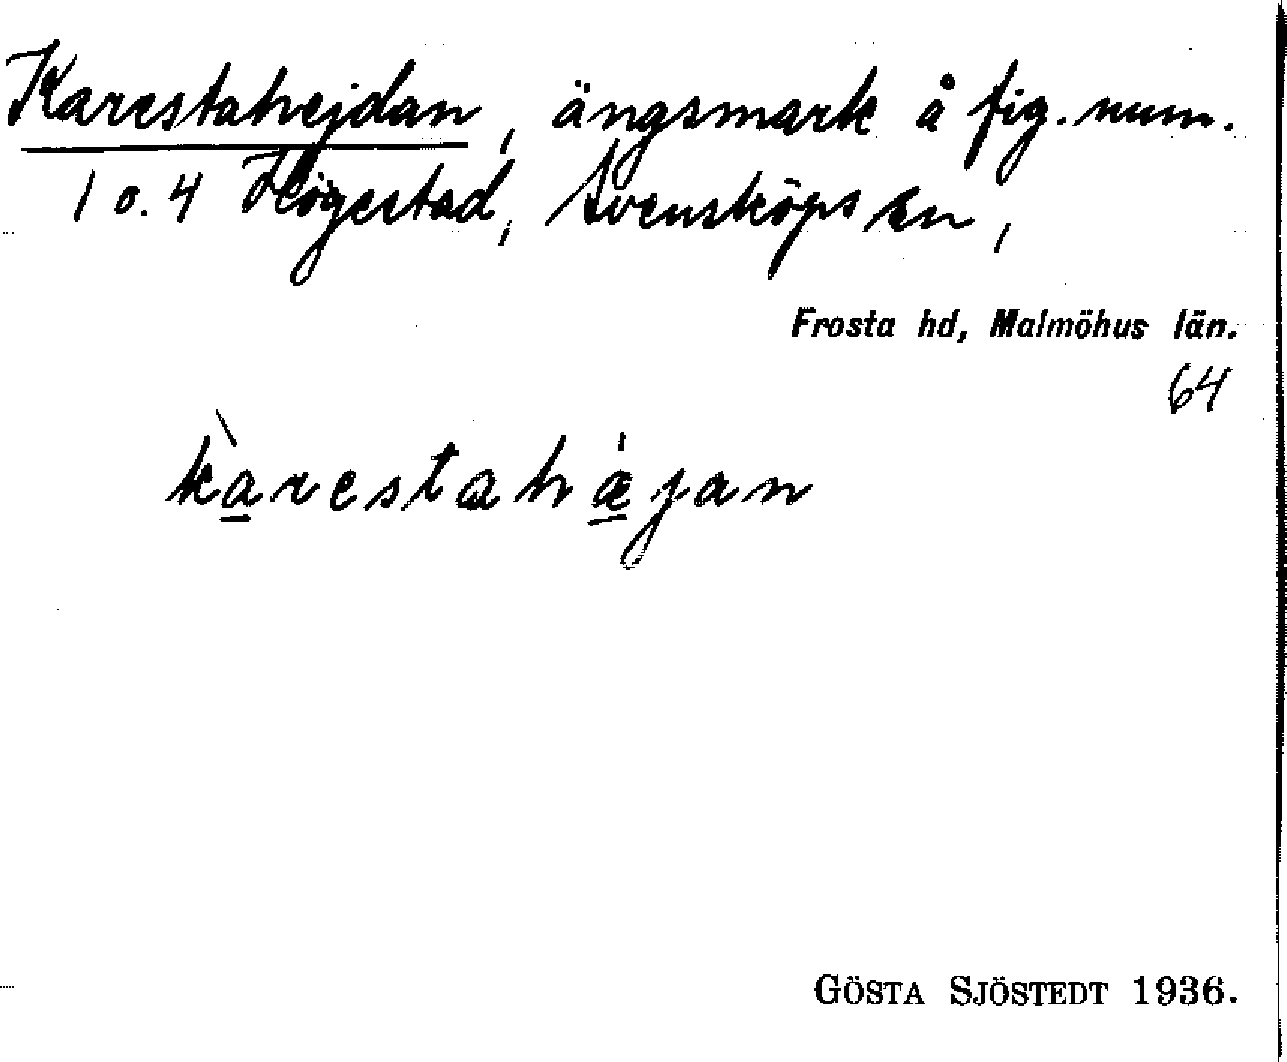 Karestahejdan, ängsmark å fig. num.
1 o. 4 Högestad, Svensköps sn,
Frosta hd, Malmöhus län.
64
kàrestahæ̍jan
GÖSTA SJÖSTEDT 1936.